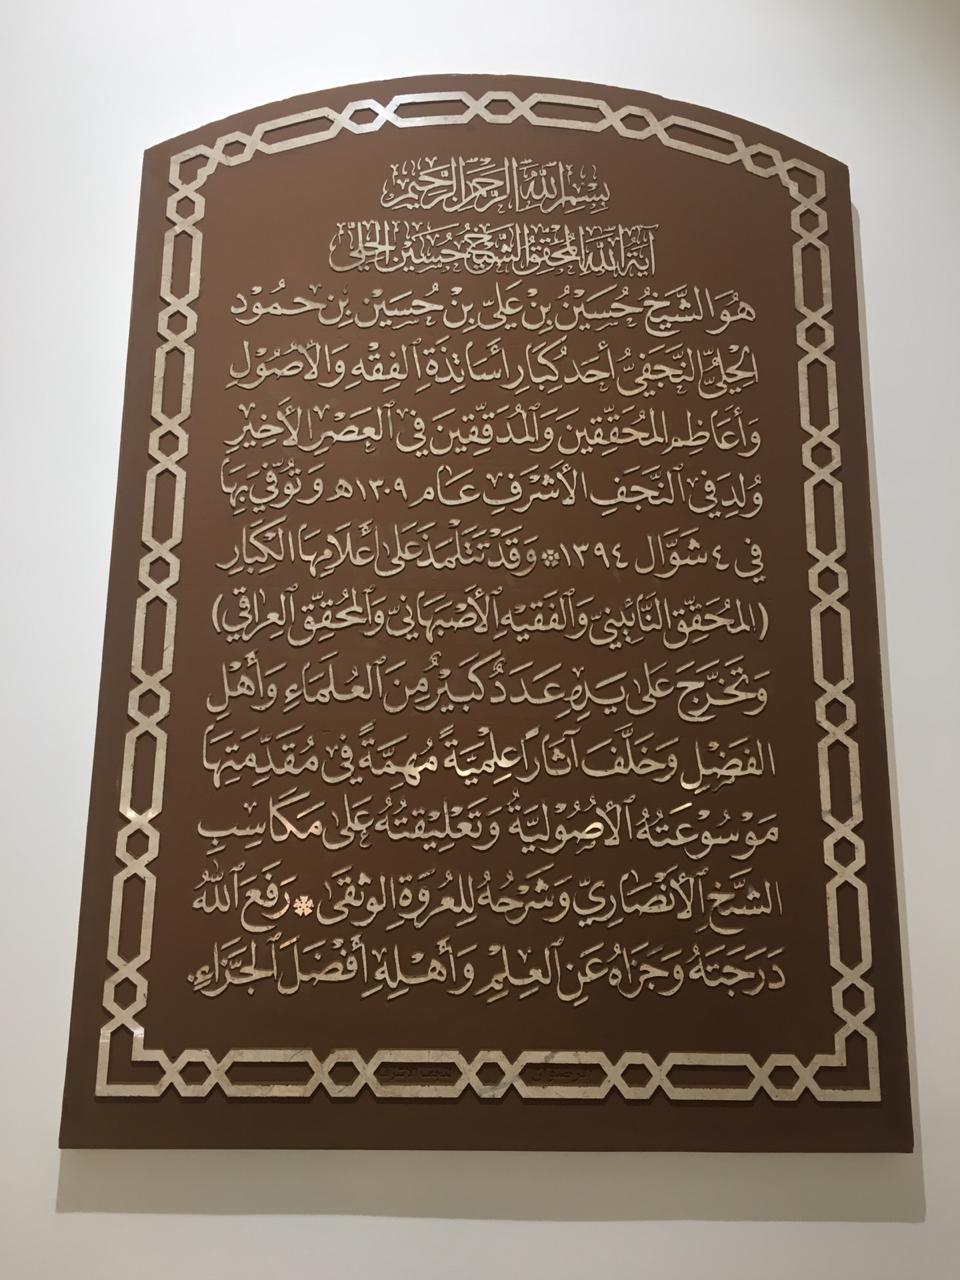 بِسْمِ اللهِ الرَّحْمٰنِ الرَّحِيْمِ
آيَةُ اللهِ المُحَقِّقُ الشَّيْخُ حُسَيْن الحِلِّي
هُوَ الشَّيْخُ حُسَيْنُ بِنْ عَلِيِّ بِنْ حُسَيْنِ بِنِ حَمُوْد
الحِلِّيُّ النَّجَفِيُّ أَحَد كُبَارِ أَسَاتِذَةِ الفِقْهِ وَالأُصُوْلِ
وَأَعَاظِمِ المُحَقِّقِين وَالمُدَقِّقِينَ فِي العَصْرِ الأَخِيْرِ
وُلِدَ فِي النَّجَفِ الأَشْرَفِ عَام ١٣٠٩هـ وَتُوُفِّيَ بِهَا
فِي ٤ شَوَّال ١٣٩٤ * وَقَدْ تَتَلْمَذَ عَلَى أَعْلَامِهَا الكِبَارِ
(المُحَقِّق النَّائِينيّ وَالفَقِيْه الأَصْبَهَانيّ وَالمُحَقِّق العِرَاقي)
وَتَخَرَّجَ عَلَى يَدِهِ عَدَدٌ كَبِيْرٌ مِنَ العُلَمَاءِ وَأَهْلِ
الفَضْلِ وَخَلَّفَ آثَارًا عِلْمِيَّةً مُهِمَّةً فِي مُقَدِّمَتِهَا
مَوْسُوْعَتُهُ الأُصُوْلِيَّةُ وَتَعْلِيْقَتُهُ عَلَى مَكَاسِبِ
الشَّيْخِ الأَنْصَارِيِّ وَشَرْحُهُ لِلعُرْوَةِ الوثْقَى * رَفَعَ اللهُ
دَرَجَتَهُ وَجَزَاهُ عَنِ العِلْمِ وَأَهْلِهِ أَفْضَلَ الجَزَاءِ.